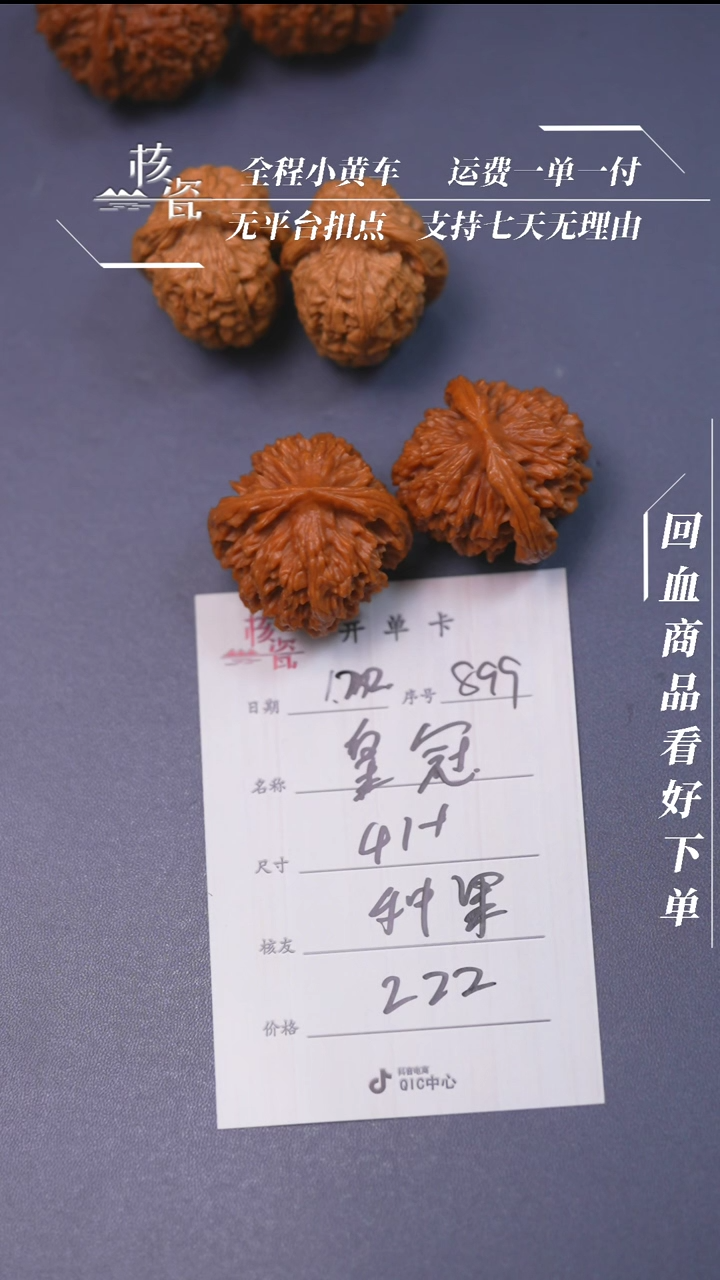 核瓷
全程小黄车 运费一单一付
无平台扣点 支持七天无理由
回血商品看好下单
核瓷 开单卡
日期 序号 899
名称 皇冠
尺寸 41+
核友 种果
价格 222
抖音电商
QIC中心